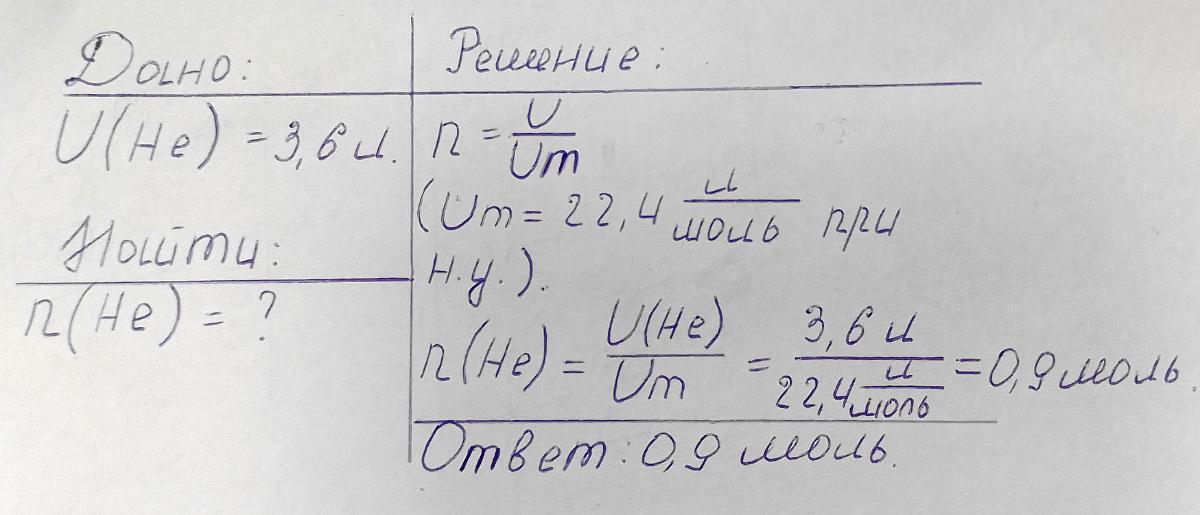 Дано:
U(He) = 3,6 л.
Найти:
n(He) = ?
Решение:
n = U/Um
(Um = 22,4 л/моль при
н.у.).
n(He) = U(He)/Um = 3,6 л/22,4 л/моль = 0,9 моль.
Ответ: 0,9 моль.